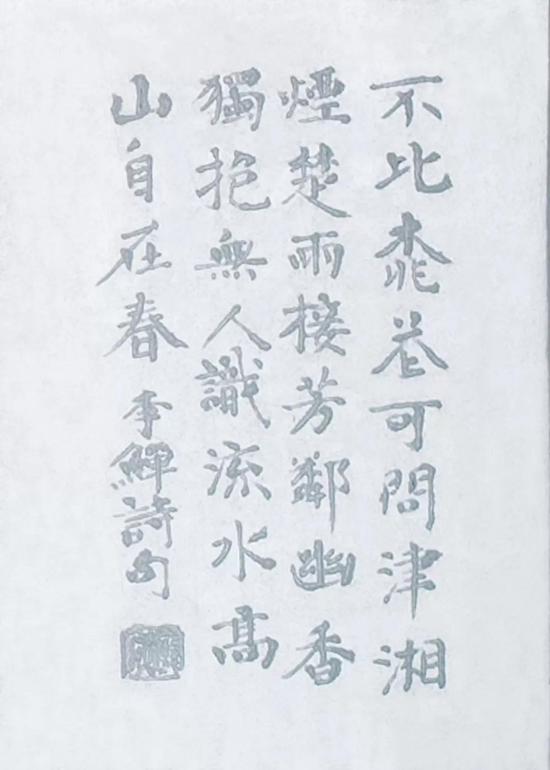 不比桃花可問津湘
煙楚雨接芳鄰幽香
獨抱無人識流水高
山自在春李鱓詩句